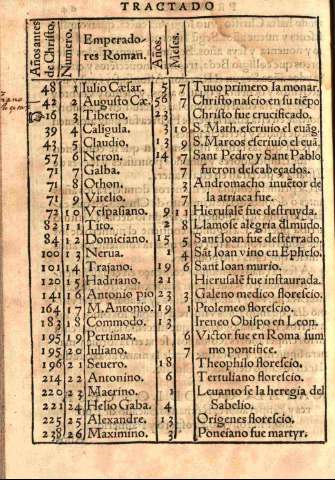 TRACTADO
Años antes de Christo. Numero. Emperadores Roman. Años. Meses.
48 1 Iulio Cæsar. 5 7 Tuuo primero la monar.
42 2 Augusto Cæ. 56 7 Christo nascio en su tiẽpo
16 3 Tiberio. 23 Christo fue crucificado.
39 4 Caligula. 3 10 S. Math. escriuio el euãg.
43 5 Claudio. 13 9 S. Marcos escriuio el euã.
57 6 Neron. 14 7 Sant Pedro y Sant Pablo
71 7 Galba. 7 fueron descabeçados.
71 8 Othon. 3 Andromacho inuẽtor de
71 9 Vitelio. 7 la atriaca fue.
72 10 Vespasiano. 9 11 Hierusalẽ fue destruyda.
82 11 Tito. 2 8 Llamose alegria đl mũdo.
84 12 Domiciano. 15 5 Sant Ioan fue desterrado.
100 13 Nerua. 1 4 Sãt Ioan vino en Epheso.
101 14 Trajano. 19 6 Sant Ioan murio.
120 15 Hadriano. 21 Hierusalẽ fue instaurada.
141 16 Antonio pio 23 3 Galeno medico florescio.
164 17 M. Antonio. 19 1 Ptolemeo florescio.
183 18 Commodo. 13 Ireneo Obispo en Leon.
195 19 Pertinax. 6 Victor fue en Roma sum
195 20 Iuliano. 7 mo pontifice.
196 21 Seuero. 18 Theophilo florescio.
214 22 Antonino. 6 Tertuliano florescio.
220 23 Macrino. 1 Leuanto se la heregia del
221 24 Helio Gaba. 4 Sabelio.
225 25 Alexandre. 13 Origenes florescio.
238 26 Maximino. 3 Ponciano fue martyr.